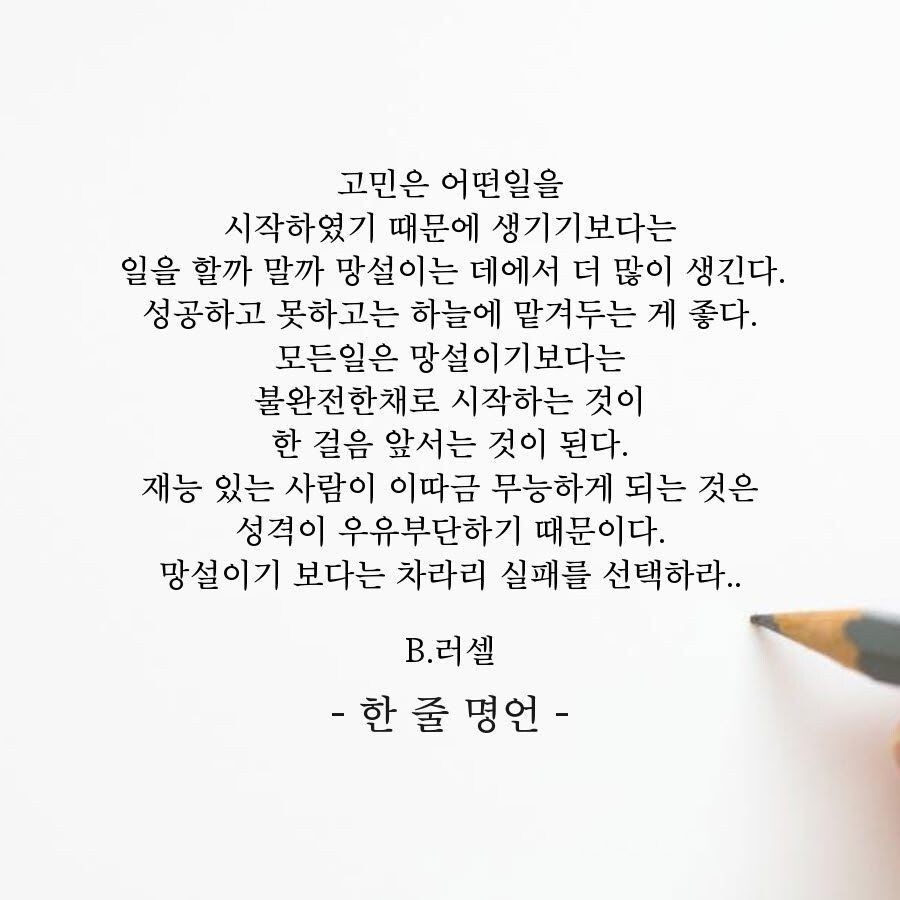 고민은 어떤일을
시작하였기 때문에 생기기보다는
일을 할까 말까 망설이는 데에서 더 많이 생긴다.
성공하고 못하고는 하늘에 맡겨두는 게 좋다.
모든일은 망설이기보다는
불완전한채로 시작하는 것이
한 걸음 앞서는 것이 된다.
재능 있는 사람이 이따금 무능하게 되는 것은
성격이 우유부단하기 때문이다.
망설이기 보다는 차라리 실패를 선택하라..
B.러셀
- 한 줄 명언 -